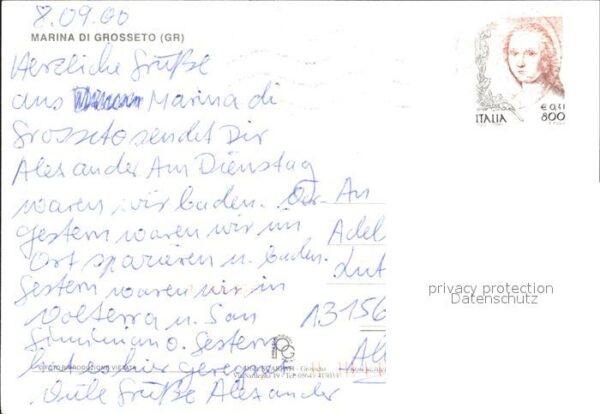 8.09.00
MARINA DI GROSSETO (GR)
Herzliche Grüße
aus Marina di
Grosseto sendet Dir
Alexander Am Dienstag
waren wir baden.
gestern waren wir im
Ort spazieren u. baden.
Gestern waren wir in
Volterra u. San
Gimimiano. Gestern
hat es hier geregnet
Viele Grüße Alexander
An
Adel
Lut
13156
ITALIA
€ 0,41
800
privacy protection
Datenschutz